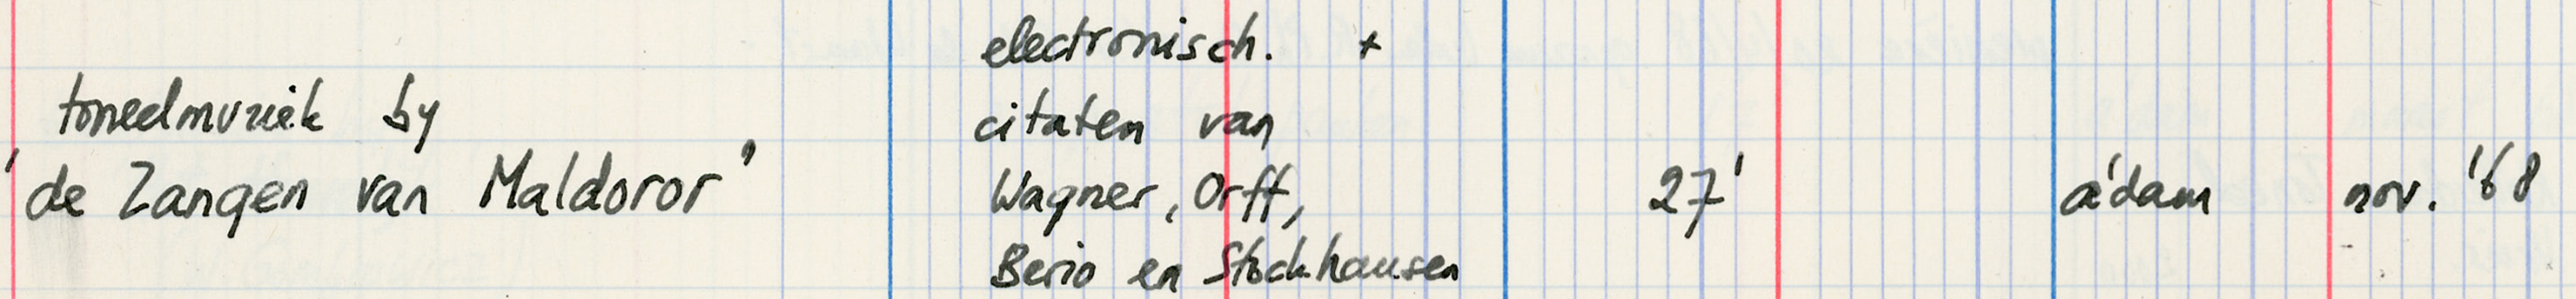 electronisch. +
toneelmuziek by
citaten van
'de Zangen van Maldoror'
Wagner, Orff,
27'
a'dam
nov. '68
Berio en Stockhausen